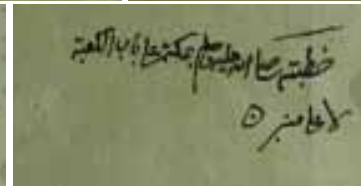 خطبته صلى الله عليه وسلم بمكة على باب الكعبة
لا على منبر ٥